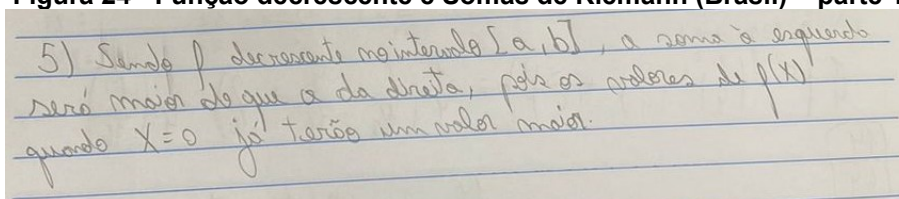 Figura 24 - Função decrescente e Somas de Riemann (Brasil) – parte
5) Sendo f decrescente no intervalo [a,b], a soma à esquerda
será maior do que a da direita, pois os valores de f(x)
quando X=0 já terão um valor maior.